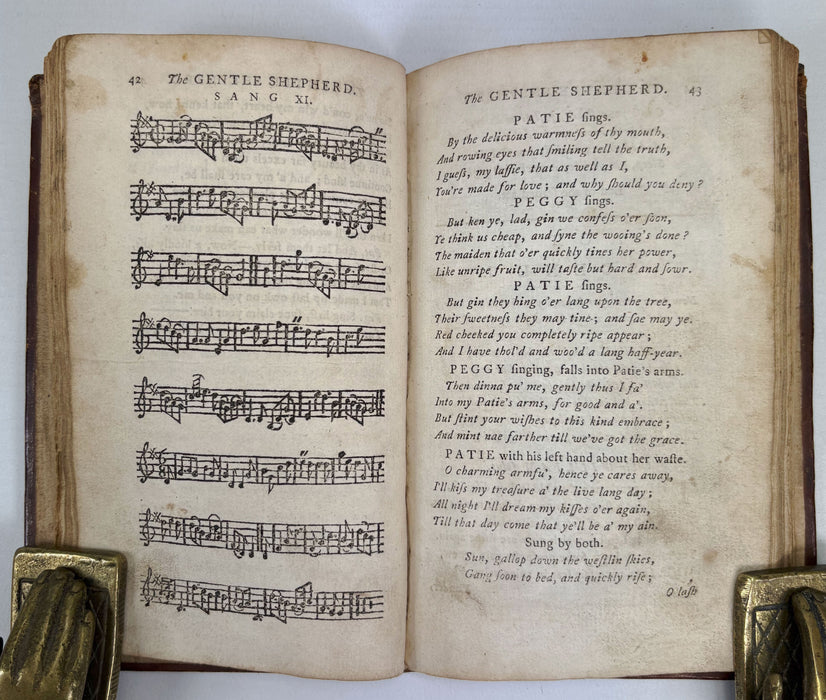 42 The GENTLE SHEPHERD.
SANG XI.
The GENTLE SHEPHERD. 43
PATIE ſings.
By the delicious warmneſs of thy mouth,
And rowing eyes that ſmiling tell the truth,
I gueſs, my laſſie, that as well as I,
You're made for love; and why ſhould you deny?
PEGGY ſings.
But ken ye, lad, gin we confeſs o'er ſoon,
Ye think us cheap, and ſyne the wooing's done?
The maiden that o'er quickly tines her power,
Like unripe fruit, will taſte but hard and ſowr.
PATIE ſings.
But gin they hing o'er lang upon the tree,
Their ſweetneſs they may tine; and ſae may ye.
Red cheeked you completely ripe appear;
And I have thol'd and woo'd a lang haff-year.
PEGGY ſinging, falls into Patie's arms.
Then dinna pu' me, gently thus I fa'
Into my Patie's arms, for good and a'.
But ſtint your wiſhes to this kind embrace;
And mint nae farther till we've got the grace.
PATIE with his left hand about her waſte.
O charming armfu', hence ye cares away,
I'll kiſs my treaſure a' the live lang day;
All night I'll dream my kiſſes o'er again,
Till that day come that ye'll be a' my ain.
Sung by both.
Sun, gallop down the weſtlin ſkies,
Gang ſoon to bed, and quickly riſe;
O laſh